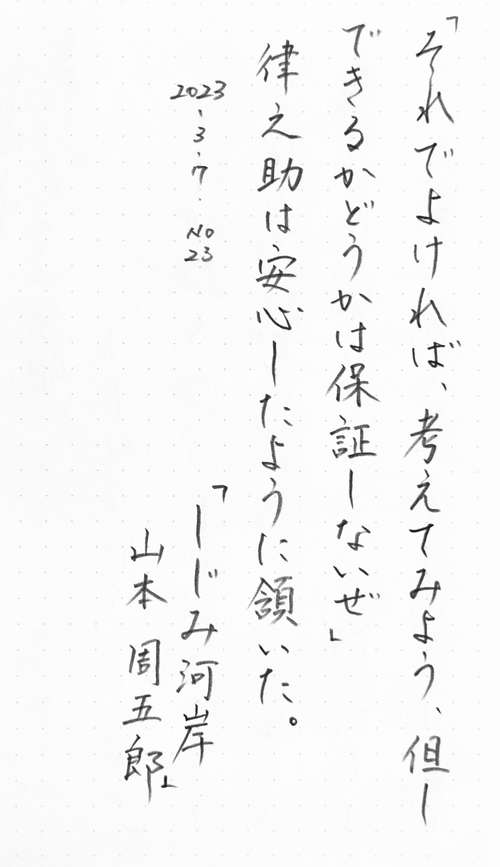 「それでよければ、考えてみよう、但し
できるかどうかは保証しないぜ」
律之助は安心したように頷いた。
2023.3.7. No23
「しじみ河岸
山本周五郎」